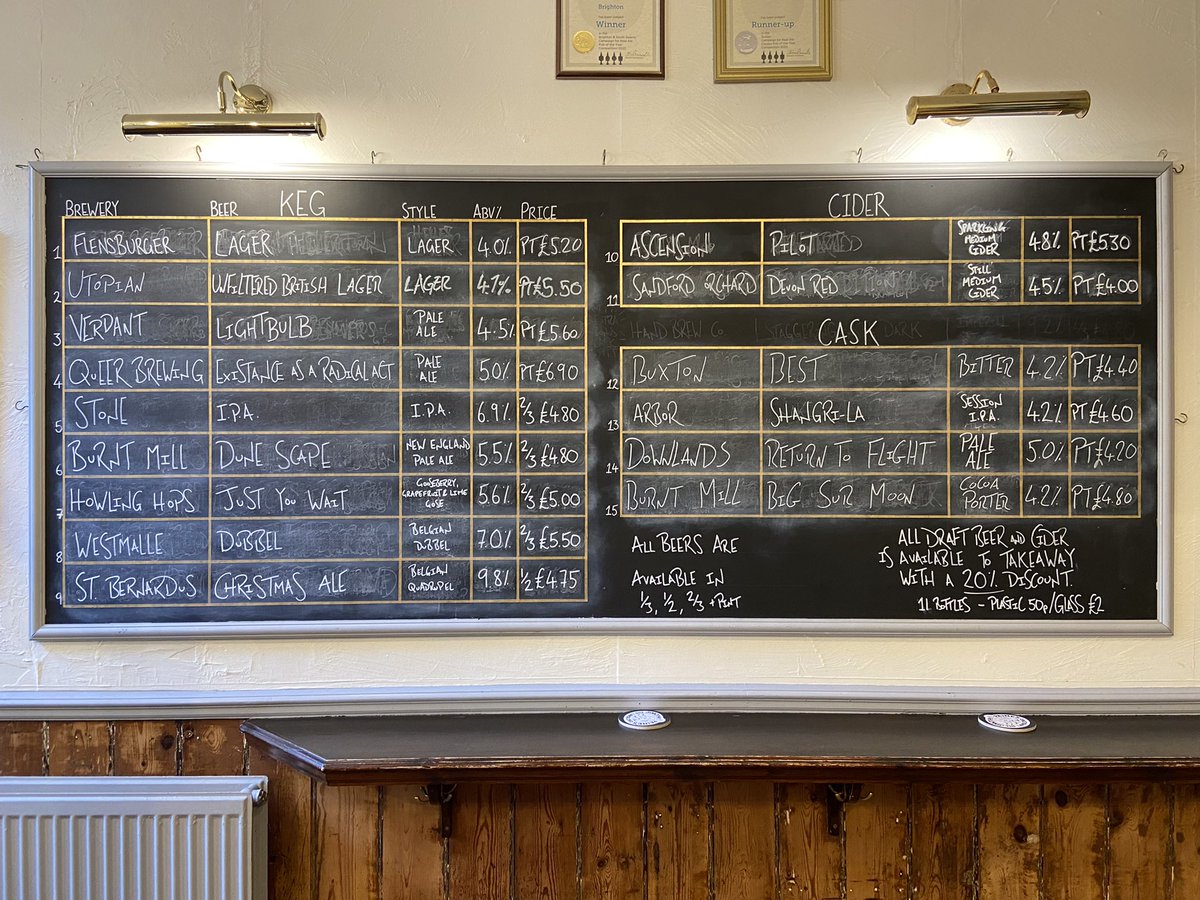 Brighton
Winner
Runner-up
KEG
BREWERY BEER STYLE ABV% PRICE
1 FLENSBURGER LAGER LAGER 4.0% PT£5.20
2 UTOPIAN UNFILTERED BRITISH LAGER LAGER 4.7% PT£5.50
3 VERDANT LIGHTBULB PALE ALE 4.5% PT£5.60
4 QUEER BREWING EXISTANCE AS A RADICAL ACT PALE ALE 5.0% PT£6.90
5 STONE I.P.A. I.P.A. 6.9% 2/3 £4.80
6 BURNT MILL DUNE SCAPE NEW ENGLAND PALE ALE 5.5% 2/3 £4.80
7 HOWLING HOPS JUST YOU WAIT GOOSEBERRY, GRAPEFRUIT & LIME GOSE 5.6% 2/3 £5.00
8 WESTMALLE DUBBEL BELGIAN DUBBEL 7.0% 2/3 £5.50
9 ST. BERNARDUS CHRISTMAS ALE BELGIAN QUADRUPEL 9.8% 1/2 £4.75
CIDER
10 ASCENSION PILOT SPARKLING MEDIUM CIDER 4.8% PT£5.30
11 SANDFORD ORCHARD DEVON RED STILL MEDIUM CIDER 4.5% PT£4.00
CASK
12 BUXTON BEST BITTER 4.2% PT£4.40
13 ARBOR SHANGRI-LA SESSION I.P.A. 4.2% PT£4.60
14 DOWNLANDS RETURN TO FLIGHT PALE ALE 5.0% PT£4.20
15 BURNT MILL BIG SUR MOON COCOA PORTER 4.2% PT£4.80
ALL BEERS ARE
AVAILABLE IN
1/3, 1/2, 2/3 + PINT
ALL DRAFT BEER AND CIDER
IS AVAILABLE TO TAKEAWAY
WITH A 20% DISCOUNT.
1L BOTTLES - PLASTIC 50p/GLASS £2